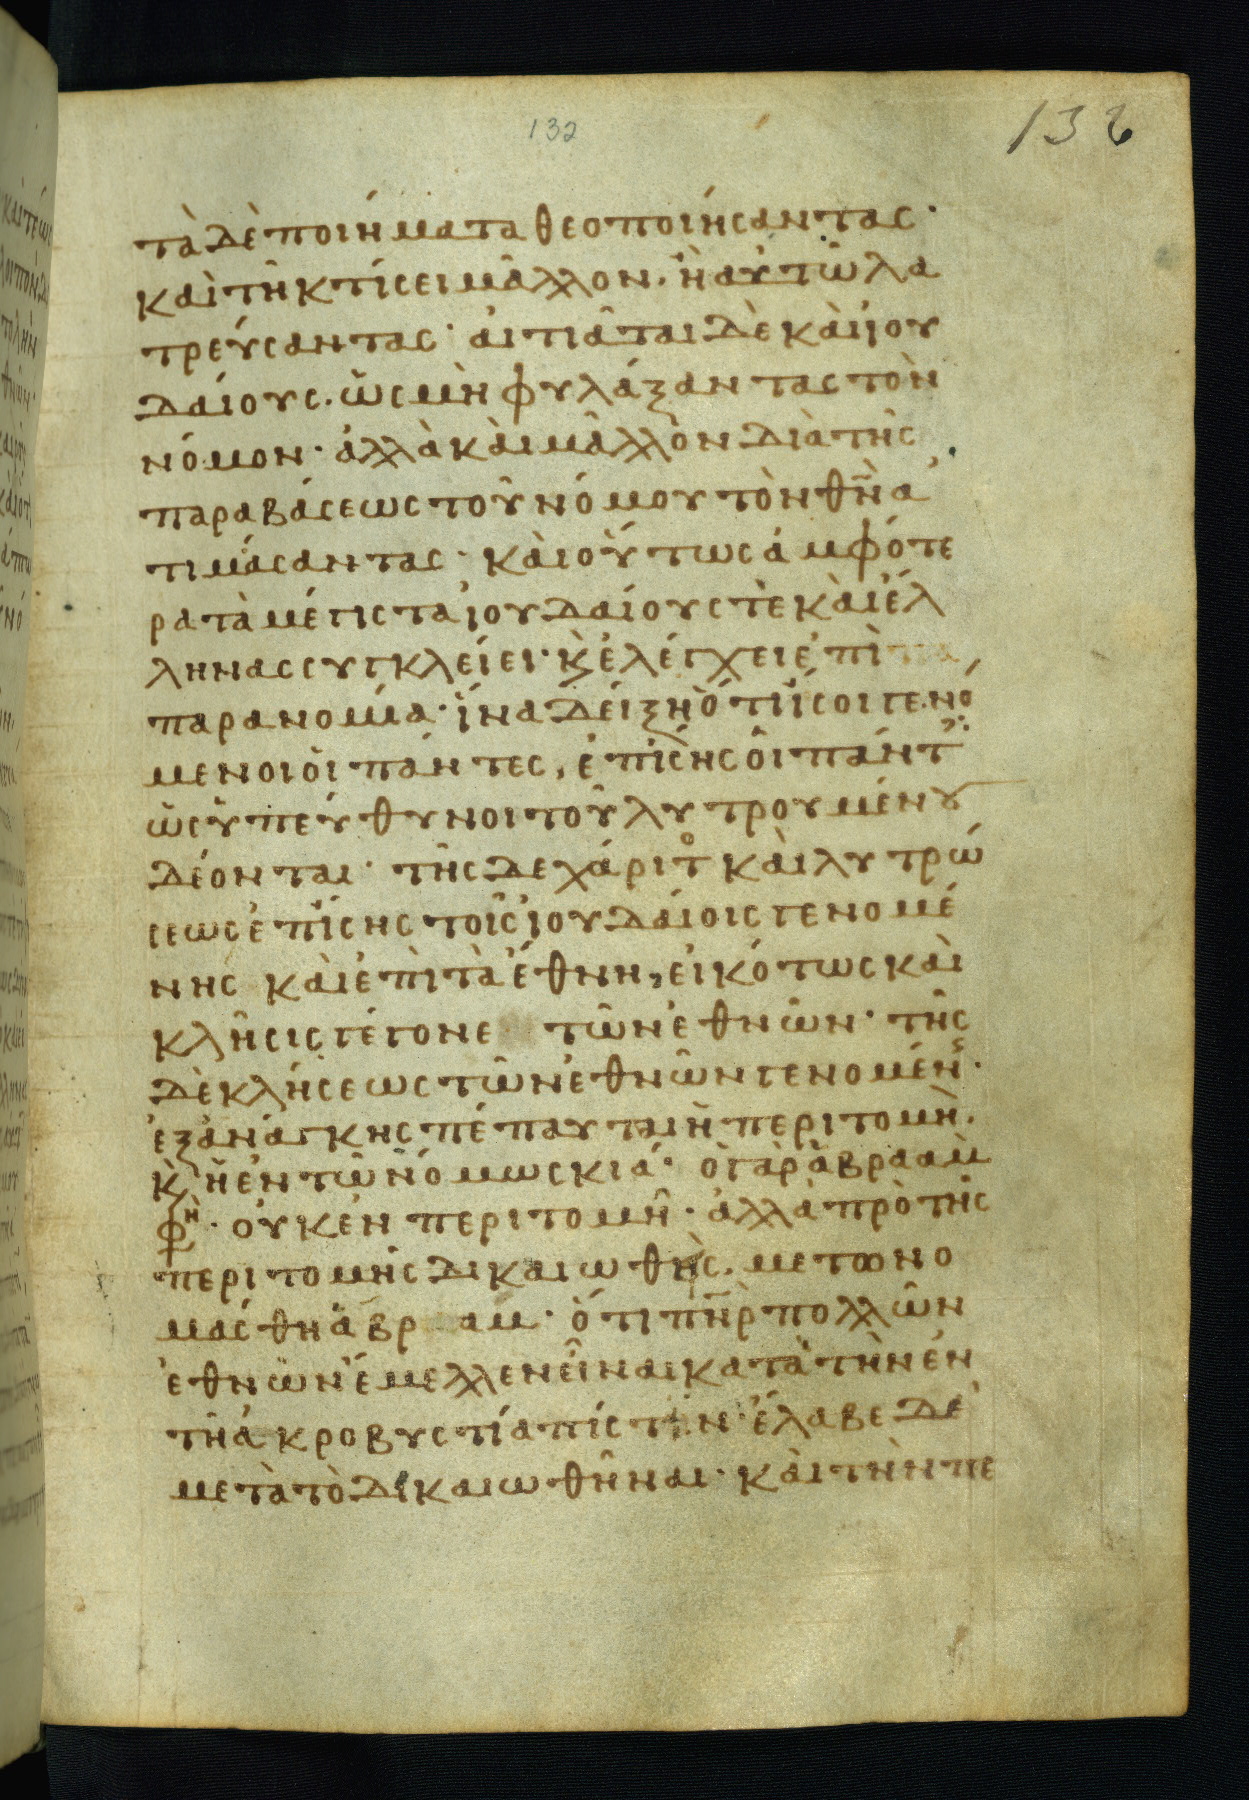 132
132
τὰ δὲ ποιήματα θεοποιήσαντας·
καὶ τῆ κτίσει μᾶλλον. ἢ αὐτῶ λα
τρεύσαντας· αἰτιᾶται δὲ καὶ ἰου
δαίους. ὡς μὴ φυλάξαντας τὸν
νόμον· ἀλλὰ καὶ μᾶλλον διὰ τῆς
παραβάσεως τοῦ νόμου τὸν θ̅ν̅ ἀ
τιμάσαντας· καὶ οὕτως ἀμφότε
ρα τὰ μέγιστα ἰουδαίους τὲ καὶ ἕλ
ληνας συγκλείει· κ̀ ἐλέγχει ἐπὶ
παρανομία· ἵνα δείξη ὅτι ἴσοι γενό
μενοι οἱ πάντες, ἐπίσης οἱ πάντ
ὡς ὑπεύθυνοι τοῦ λυτρουμένȣ
δέονται· τῆς δε χάριτο καὶ λυτρώ
σεως ἐπίσης τοῖς ἰουδαίοις γενομέ
νης καὶ ἐπὶ τὰ ἔθνη, εἰκότως καὶ
κλῆσις γέγονε τῶν ἐθνῶν· τῆς
δὲ κλήσεως τῶν ἐθνῶν γενομένης·
ἐξανάγκης πέπαυται ἡ περιτομὴ.
κ̀ ἡ ἐν τῶ νόμω σκιά· ὁ γὰρ ἀβραὰμ
φη· οὐκ ἐν περιτομῆ· ἀλλὰ πρὸ τῆς
περιτομῆς δικαιωθὴς. μετωνο
μάσθη ἀβραάμ· ὅτι π̅η̅ρ̅ πολλῶν
ἐθνῶν ἔμελλεν εἶναι κατὰ τὴν ἐν
τῆ ἀκροβυστία πίστιν· ἔλαβε δὲ
μετὰ τὸ δικαιωθῆναι· καὶ τὴν πε